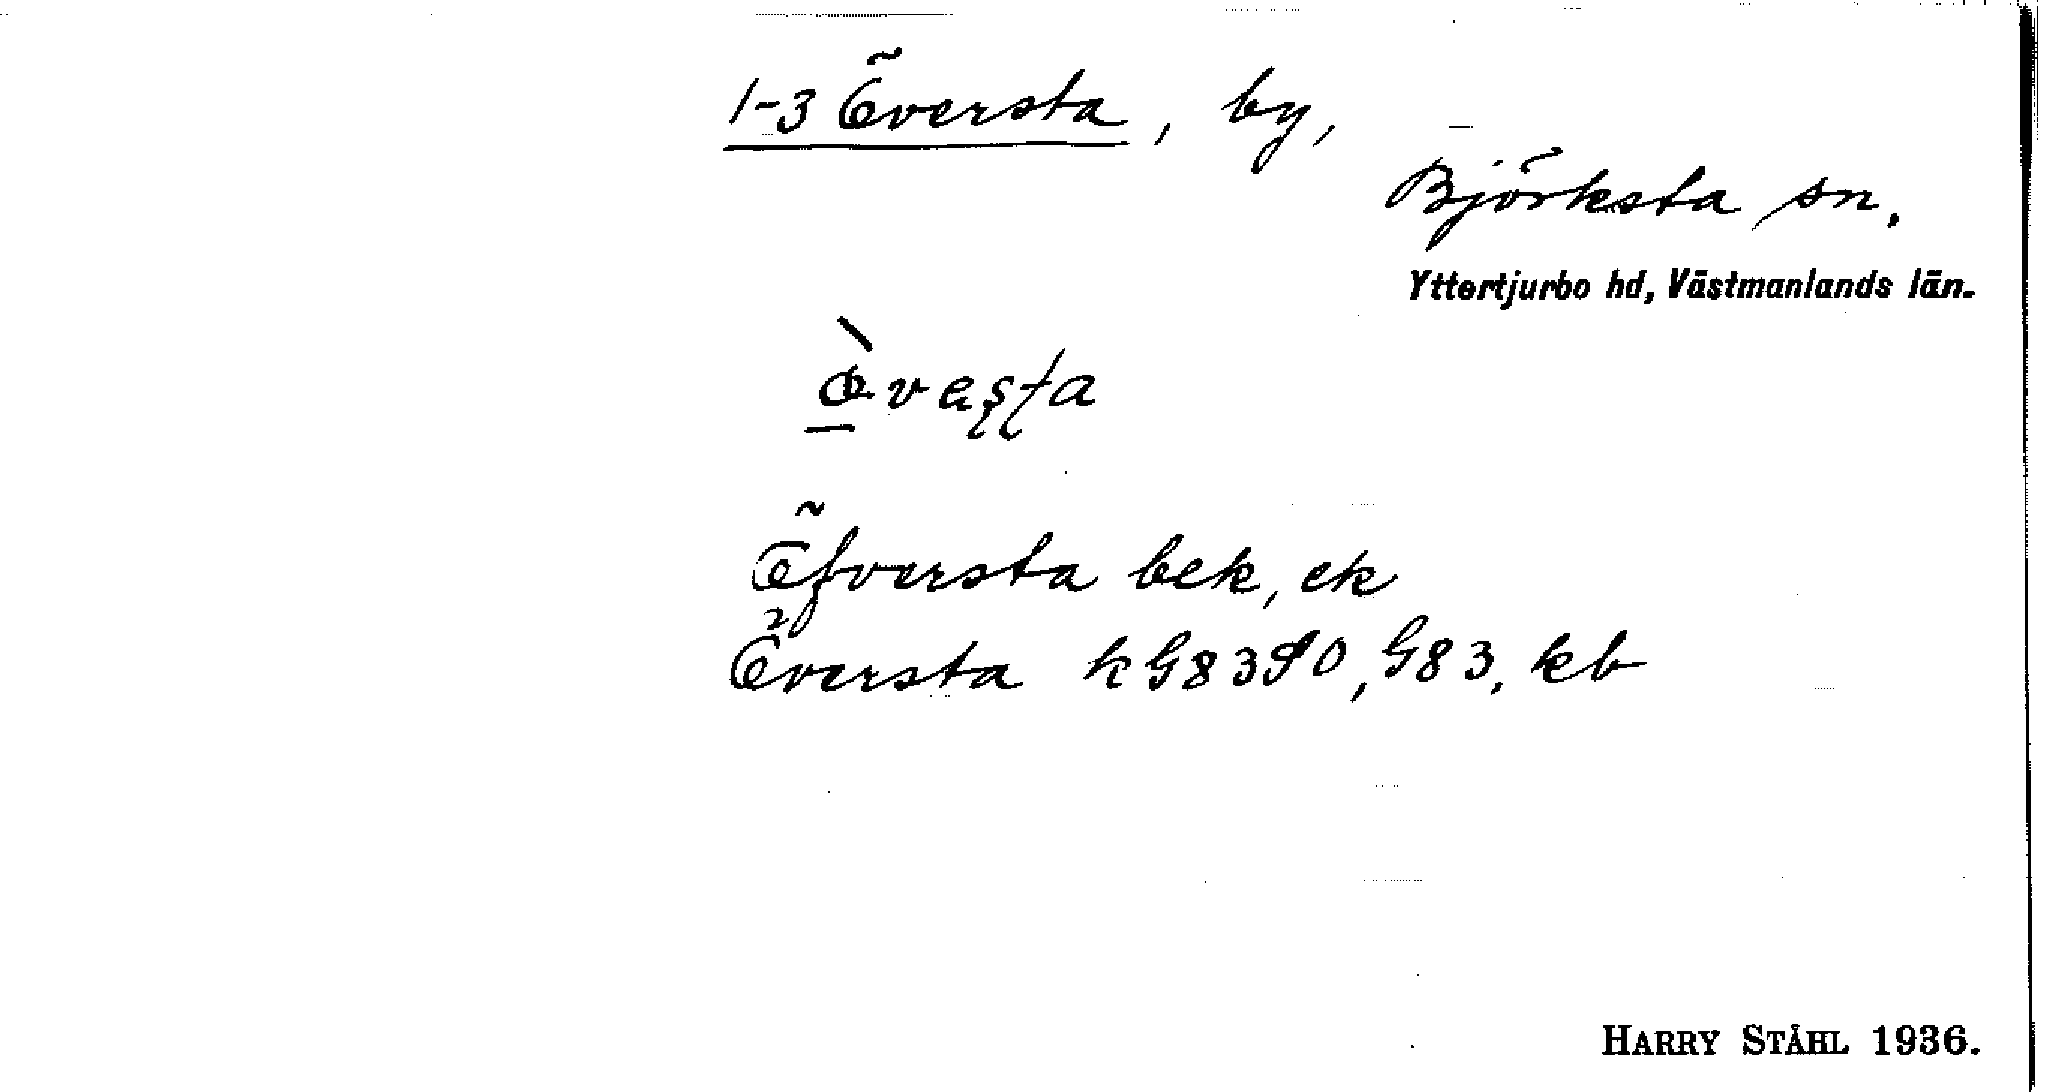 1-3 Översta, by,
Björksta sn.
Yttertjurbo hd, Västmanlands län.
Öfversta bek, ek
Översta kG8390, G83, kb
HARRY STÅHL 1936.